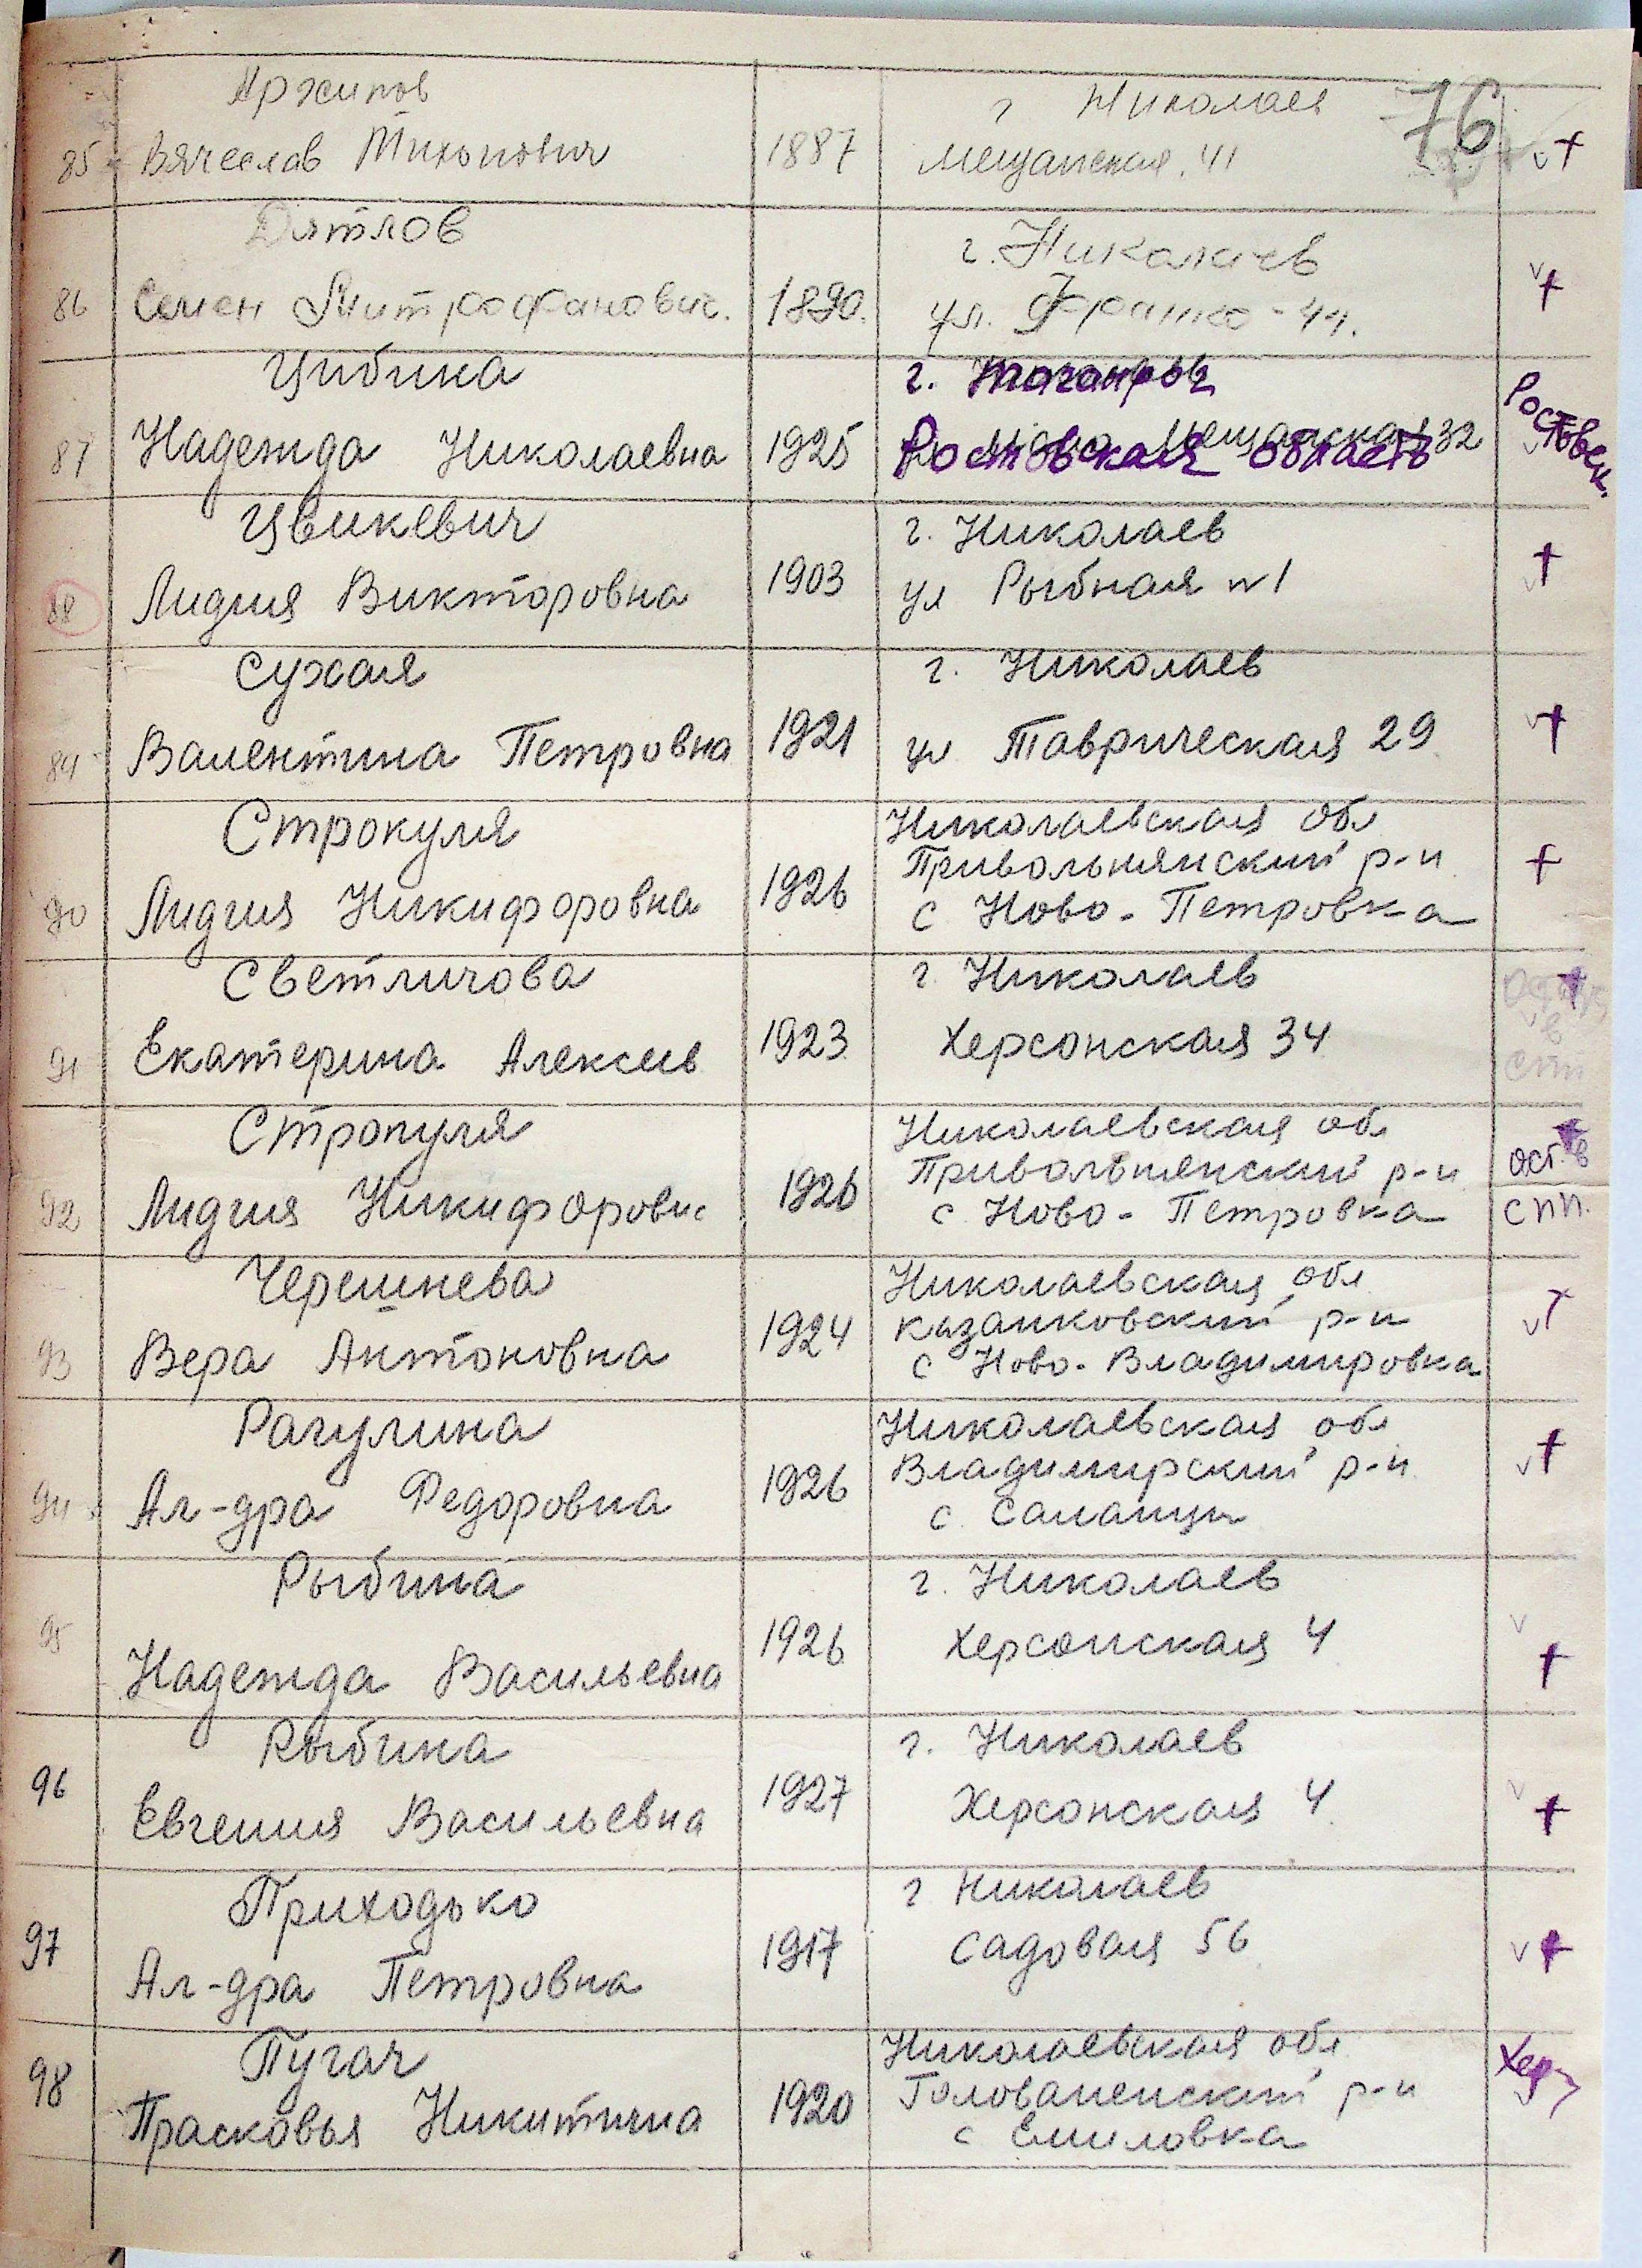 76
Архипов
г Николаев
85 Вячеслав Тихонович 1887 Мещанская. 41 v+
Дятлов
г. Николаев
86 Семен Митрофанович. 1890. ул. Франко - 44. v+
Цибика
г. Таганрог
87 Надежда Николаевна 1925 Ростовская область 32 Ростовск.
Цвикевич
г. Николаев
88 Лидия Викторовна 1903 ул Рыбная № 1 v+
Сухая
г. Николаев
89 Валентина Петровна 1921 ул Таврическая 29 v+
Строкуля
Николаевская обл
Привольнянский р-н +
90 Лидия Никифоровна 1926 с Ново-Петровка
Светличова
г. Николаев
91 Екатерина Алексеев 1923 Херсонская 34
в
Стропуля
Николаевская обл
Привольнянский р-н ост. в
92 Лидия Никифоровн 1926 с Ново-Петровка спп.
Черешнева
Николаевская обл
Казанковский р-н v+
93 Вера Антоновна 1924 с Ново-Владимировка
Рагулина
Николаевская обл
Владимирский р-н v+
94 Ал-дра Федоровна 1926 с.
Рыбина
г. Николаев
95 Надежда Васильевна 1926 Херсонская 4 v+
Рыбина
г. Николаев
96 Евгения Васильевна 1927 Херсонская 4 v+
Приходько
г Николаев
97 Ал-дра Петровна 1917 Садовая 56 v+
Пугач
Николаевская обл
Голованенский р-н
98 Прасковья Никитична 1920 с Емиловка